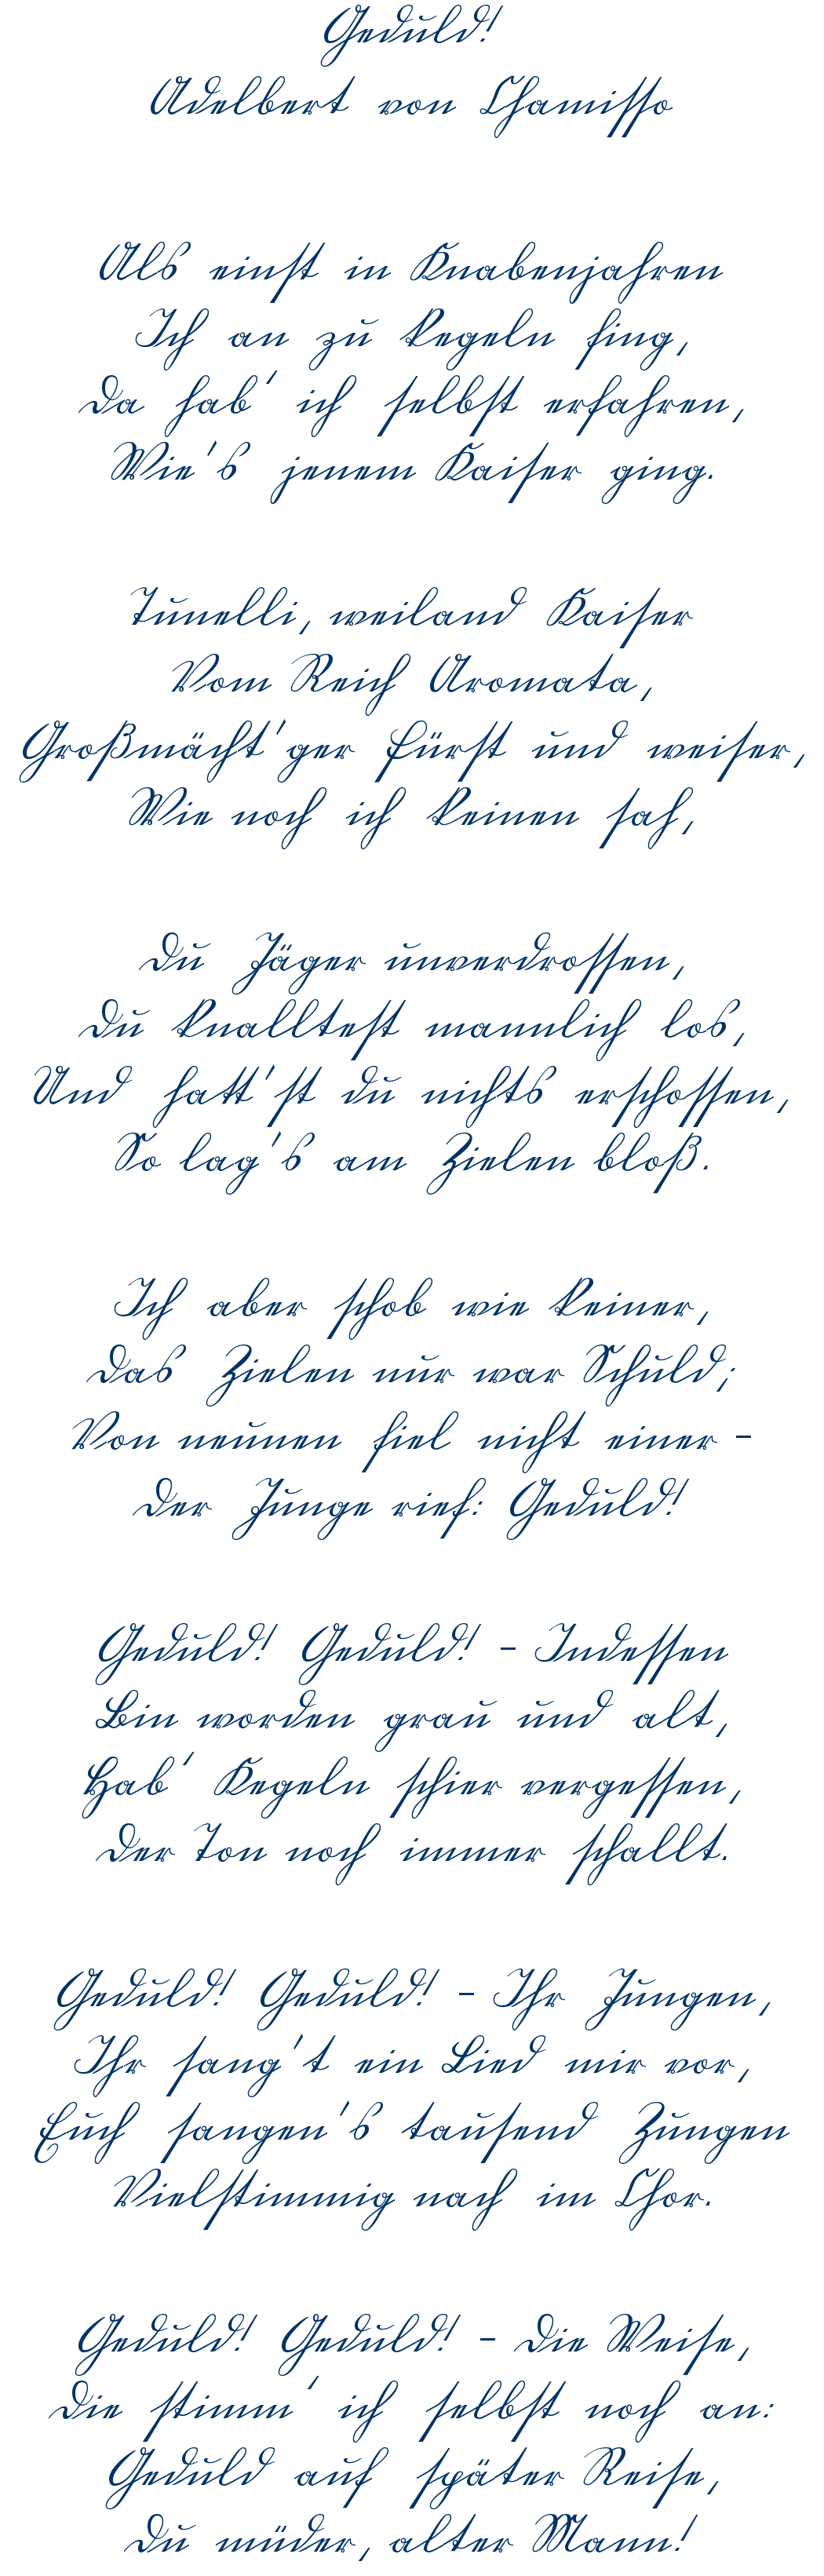 Geduld!
Adelbert von Chamisso
Als einst in Knabenjahren
Ich an zu kegeln fing,
Da hab' ich selbst erfahren,
Wie's jenem Kaiser ging.
Tunelli, weiland Kaiser
Vom Reich Aromata,
Großmächt'ger Fürst und weiser,
Wie noch ich keinen sah,
Du Jäger unverdrossen,
Du knalltest mannlich los,
Und hatt'st du nichts erschossen,
So lag's am Zielen bloß.
Ich aber schob wie keiner,
Das Zielen nur war Schuld;
Von neunen fiel nicht einer -
Der Junge rief: Geduld!
Geduld! Geduld! - Indessen
Bin worden grau und alt,
Hab' Kegeln schier vergessen,
Der Ton noch immer schallt.
Geduld! Geduld! - Ihr Jungen,
Ihr sang't ein Lied mir vor,
Euch sangen's tausend Zungen
Vielstimmig nach im Chor.
Geduld! Geduld! - Die Weise,
Die stimm' ich selbst noch an:
Geduld auf später Reise,
Du müder, alter Mann!